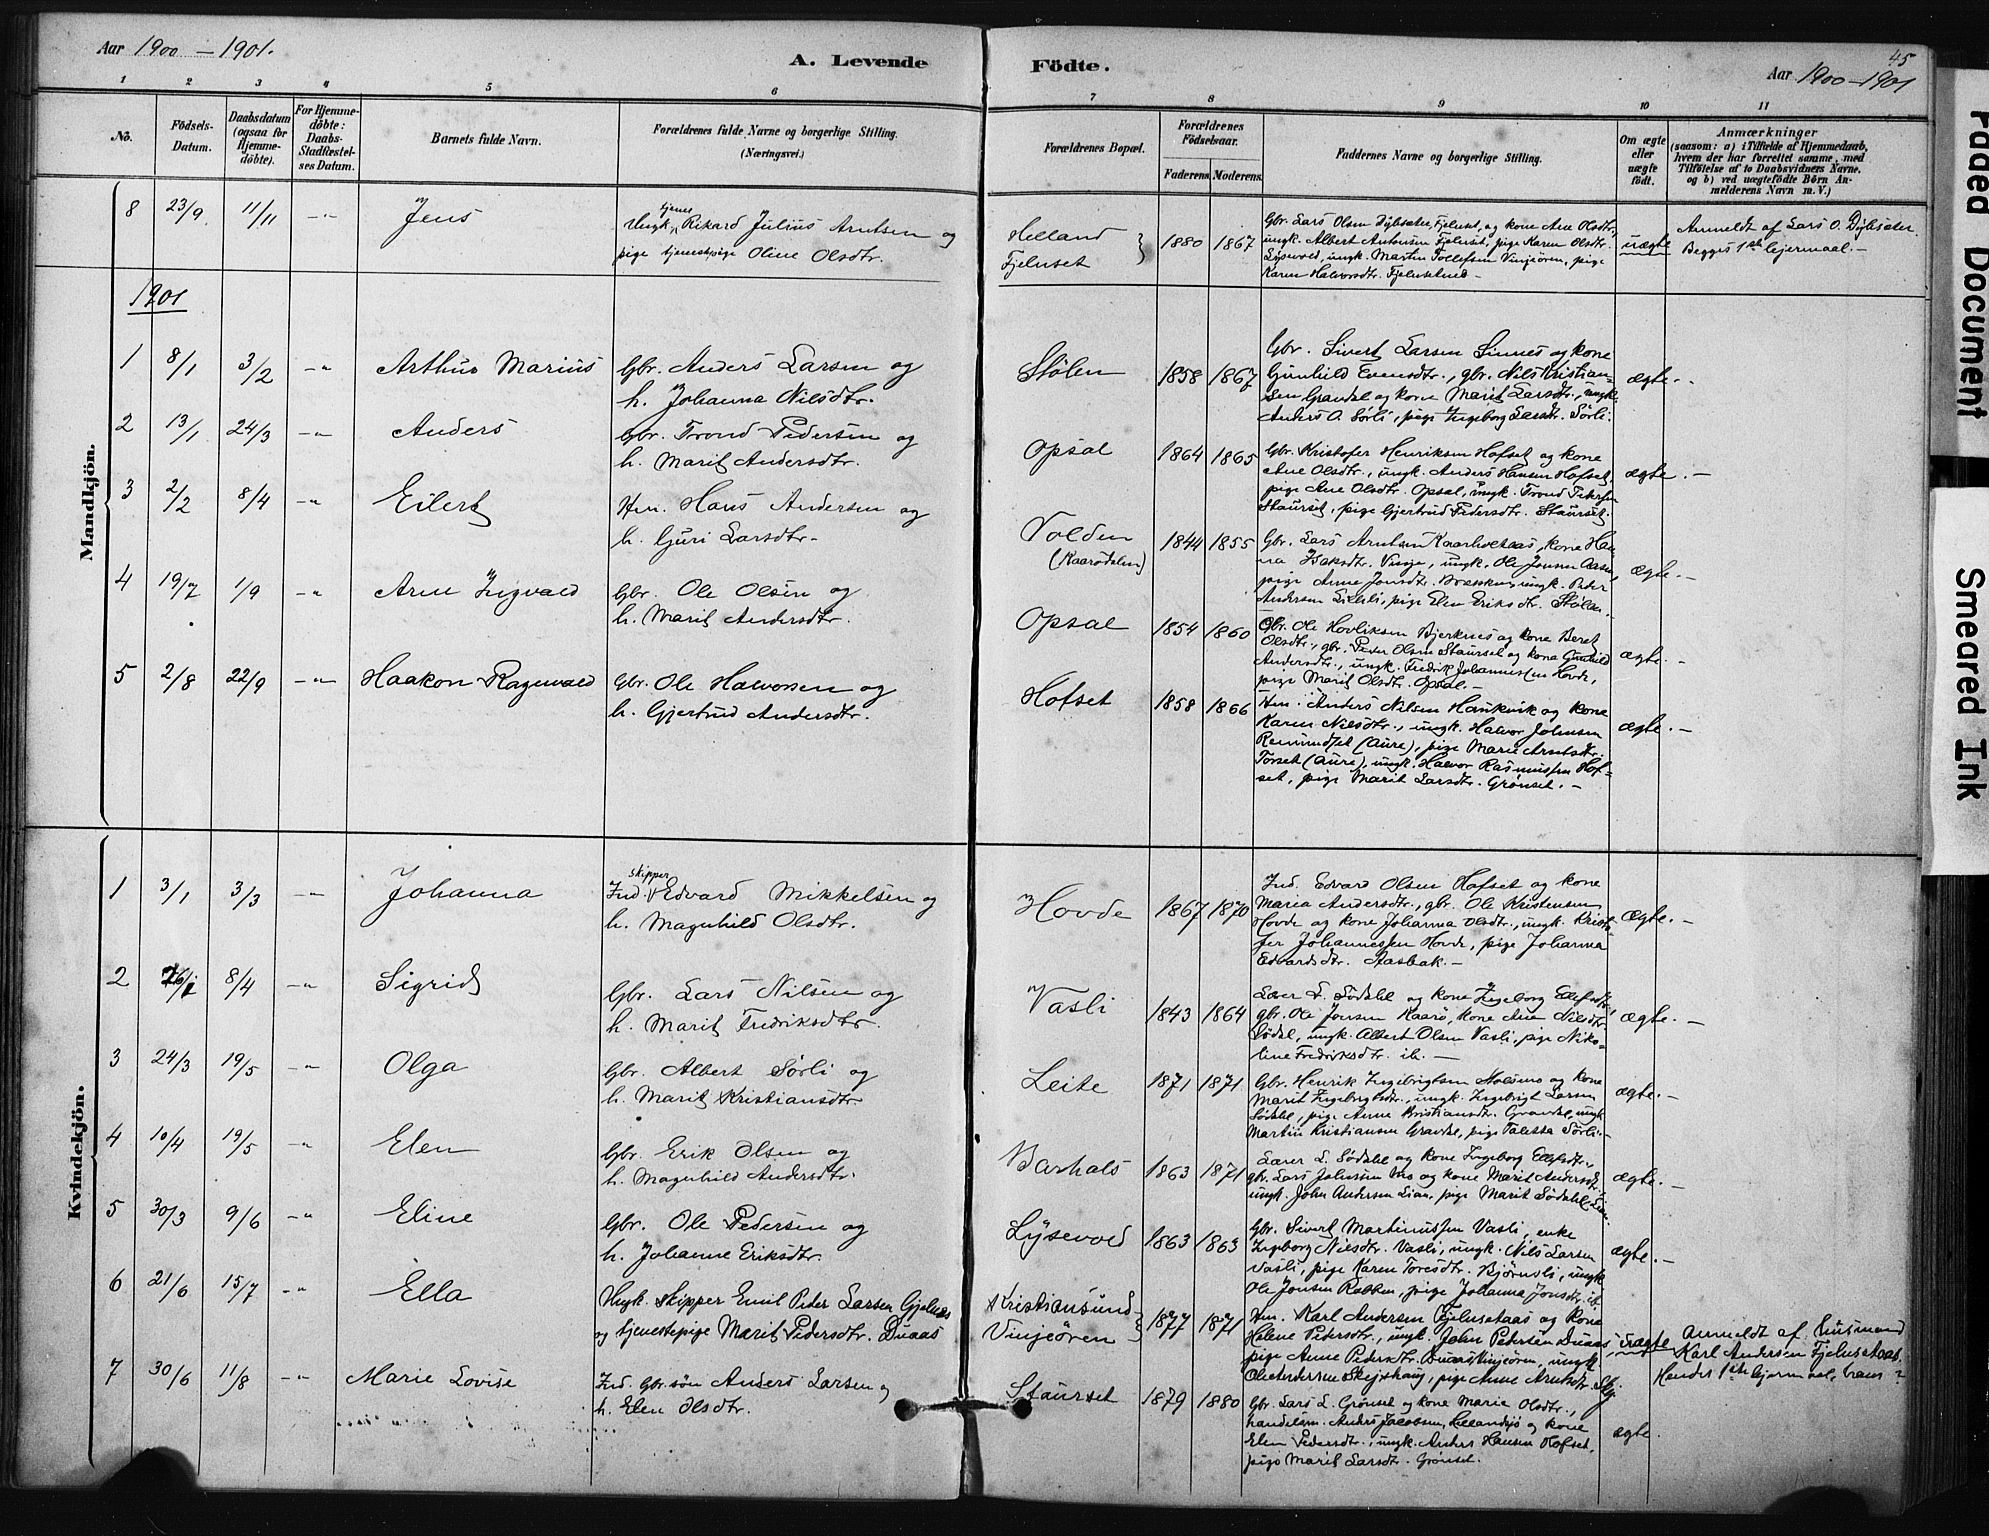 Aar 1900 – 1901.
A. Levende
Födte.
45
Aar 1900 – 1901
1 2 3 4 5 6 7 8 9 10 11
No.
Födsels-
Datum.
Daabsdatum
(ogsaa for
Hjemme-
döbte).
For Hjemme-
döbte:
Daabs-
Stadfæstel-
ses Datum.
Barnets fulde Navn.
Forældrenes fulde Navne og borgerlige Stilling.
(Næringsvei.)
Forældrenes Bopæl.
Forældrenes
Födselsaar.
Faderens. Moderens.
Faddernes Navne og borgerlige Stilling.
Om ægte
eller
uægte
födt.
Anmærkninger
(saasom: a) i Tilfælde af Hjemmedaab,
hvem der har forrettet samme, med
Tilföielse af to Daabsvidners Navne,
og b) ved uægtefödte Börn An-
melderens Navn m. V.)
Mandkjön.
8 23/9 11/11 -"- Jens
Ungk. tjener Rikard Julius Arntsen og
pige tjenestepige Oline Olsdtr.
Helland
Fjelnset
1880 1867
Gbr. Lars Olsen Dybsæter, Fjelnset, og kone Ane Olsdtr.,
ungk. Albert Antonsen Fjelnset, pige Karen Olsdtr.
Lysevold, ungk. Martin Tollefsen Vinjeören, pige
Karen Halvorsdtr. Fjelnset
uægte
Anmeldt af Lars O. Dybsæter.
Begges 1ste leiermaal. –
1901
1 8/1 3/2 -"- Arthur Marius
Gbr. Anders Larsen og
h. Johanna Nilsdtr.
Stölen
1858 1867
Gbr. Sivert Larsen Sinnes og kone
Gunhild Evensdtr., gbr. Nils Kristian-
sen Gravdal og kone Marit Larsdtr., ungk.
Anders A. Sörli, pige Ingeborg Larsdtr. Sörli.
ægte. –
2 13/1 24/3 -"- Anders
Gbr. Trond Pedersen og
h. Marit Andersdtr.
Opsal
1864 1865
Gbr. Kristofer Henriksen Hofset og kone
Ane Olsdtr., ungk. Anders Hansen Hofset,
pige Ane Olsdtr. Opsal, ungk. Trond Petersen
Staurset, pige Gjertrud Pedersdtr. Staurset.
ægte. –
3 2/2 8/4 -"- Eilert
Hm. Hans Andersen og
h. Guri Larsdtr. –
Volden
(Kaarödalen)
1844 1855
Gbr. Lars Arntsen Kaarholtaas, kone Han-
na Isaksdtr. Vinje, ungk. Ole Jonsen Aasen,
pige Anne Jonsdtr. ungk. Peder
Andersen pige Elen Eriksdtr. Stölen.
ægte. –
4 19/7 1/9 -"- Arne Ingvald
Gbr. Ole Olsen og
h. Marit Andersdtr.
Opsal
1854 1860
Gbr. Ole Hovliksen Bjerknes og kone Beret
Olsdtr., gbr. Peder Olsen Staurset og kone Gunhild
Andersdtr., ungk. Fredrik Johannessen Hovde,
pige Marit Olsdtr. Opsal. –
ægte. –
5 2/8 22/9 -"- Haakon Ragnvald
Gbr. Ole Halvorsen og
h. Gjertrud Andersdtr.
Hofset
1858 1866
Hm. Anders Nilsen Haukvik og kone
Karen Nilsdtr., ungk. Halvor Johnsen
Reinundset (Aure), pige Marie Arntsdtr.
Torset (Aure), ungk. Halvor Rasmussen Hof-
set, pige Marit Larsdtr. Grönset. –
ægte. –
Kvindekjön.
1 3/1 3/3 -"- Johanna
Ind. skipper Edvard Mikkelsen og
h. Magnhild Olsdtr.
Hovde
1867 1870
Ind. Edvard Olsen Hofset og kone
Maria Andersdtr., gbr. Ole Kristensen
Hovde og kone Johanna Olsdtr., ungk. Kristo-
fer Johannessen Hovde, pige Johanna
Edvardsdtr. Aasbak. –
ægte. –
2 26/1 8/4 -"- Sigrid
Gbr. Lars Nilsen og
h. Marit Fredriksdtr.
Vasli
1843 1864
Lærer L. Södahl og kone Ingeborg Ellefsdtr.,
gbr. Ole Jonsen Kaarö, kone Ane Nilsdtr.
Södal, ungk. Albert Olsen Vasli, pige Niko-
line Fredriksdtr. ib. –
ægte. –
3 24/3 19/5 -"- Olga
Gbr. Albert Sörli og
h. Marit Kristiansdtr.
Leite
1871 1871
Gbr. Henrik Ingebrigtsen Moesmo og kone
Marit Ingebrigtsdtr., ungk. Ingebrigt Larsen
Södahl, pige Anne Kristiansdtr. Gravdal, ungk.
Martin Kristiansen Gravdal, pige Taletta Sörli. –
ægte. –
4 10/4 19/5 -"- Elen
Gbr. Erik Olsen og
h. Magnhild Andersdtr.
Barhals
1863 1871
Lærer L. Södahl og kone Ingeborg Ellefsdtr.,
gbr. Lars Johnsen Mo og kone Marit Andersdtr.,
ungk. John Andersen Lian, pige Marit Södahl
ægte. –
5 30/3 9/6 -"- Eline
Gbr. Ole Pedersen og
h. Johanne Eriksdtr.
Lysevold
1863 1863
Gbr. Sivert Martinussen Vasli, enke
Ingeborg Nilsdtr. Vasli, ungk. Nils Larsen
Vasli, pige Karen Toresdtr. Björnli, ungk.
Ole Jonsen Rabben, pige Johanna Jonsdtr. ib.
ægte. –
6 21/6 15/7 -"- Ella
Ungk. skipper Emil Peder Larsen Gjelnæs
og tjenestepige Marit Pedersdtr. Duaas
Kristiansund
Vinjeören
1877 1871
Hm. Karl Andersen Fjelnsetaas og kone
Helene Pedersdtr., ungk. John Pedersen Duaas,
pige Anne Pedersdtr. Duaas, Vinjeören, ungk.
Ole Andersen Skeishaug, pige Anne Arntsdtr.
uægte
Anmeldt af husmand
Karl Andersen Fjelnsetaas.
Hendes 1ste leiermaal, hans ?
7 30/6 11/8 -"- Marie Lovise
Ind. gbr.sön Anders Larsen og
h. Elen Olsdtr.
Staurset
1879 1880
Gbr. Lars L. Grönset og kone Marie Olsdtr.,
handelsm. Anders Jacobsen, Hellandsjö og kone
Elen Pedersdtr., ungk. Anders Hansen Hofset,
pige Marit Larsdtr. Grönset.
ægte.
Faded Document
Smeared Ink